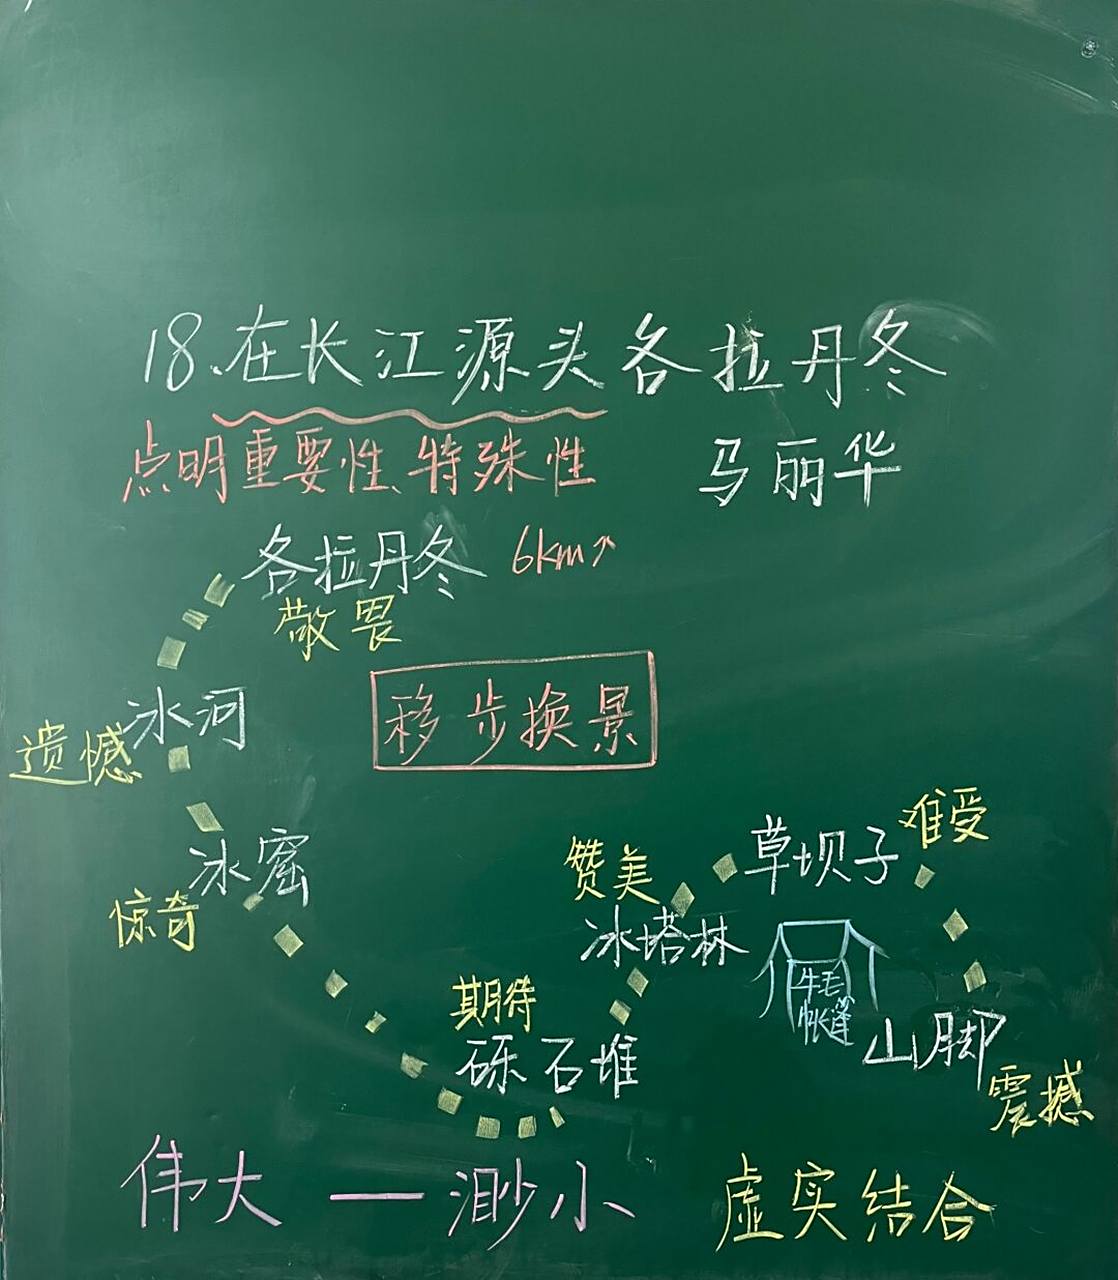 18、在长江源头各拉丹冬
点明重要性、特殊性
马丽华
各拉丹冬 6km↗
敬畏
移步换景
冰河
遗憾
冰窟
惊奇
期待
砾石堆
赞美
冰塔林
草坝子
难受
牛毛
帐篷
山脚
震撼
伟大 — 渺小
虚实结合